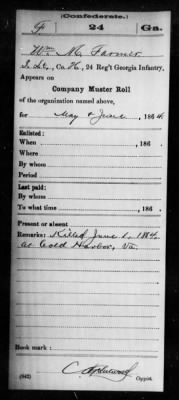 (Confederate.)
F 24 Ga.
Wm M. Farmer
Co. H, 24 Reg't Georgia Infantry.
Appears on
Company Muster Roll
of the organization named above,
for May & June, 1864.
Enlisted:
When , 186 .
By whom
Period
Last paid:
By whom
To what time , 186 .
Present or absent
Remarks: Killed June 1, 1864,
at Cold Harbor, Va.
Book mark:
(642) Copyist.